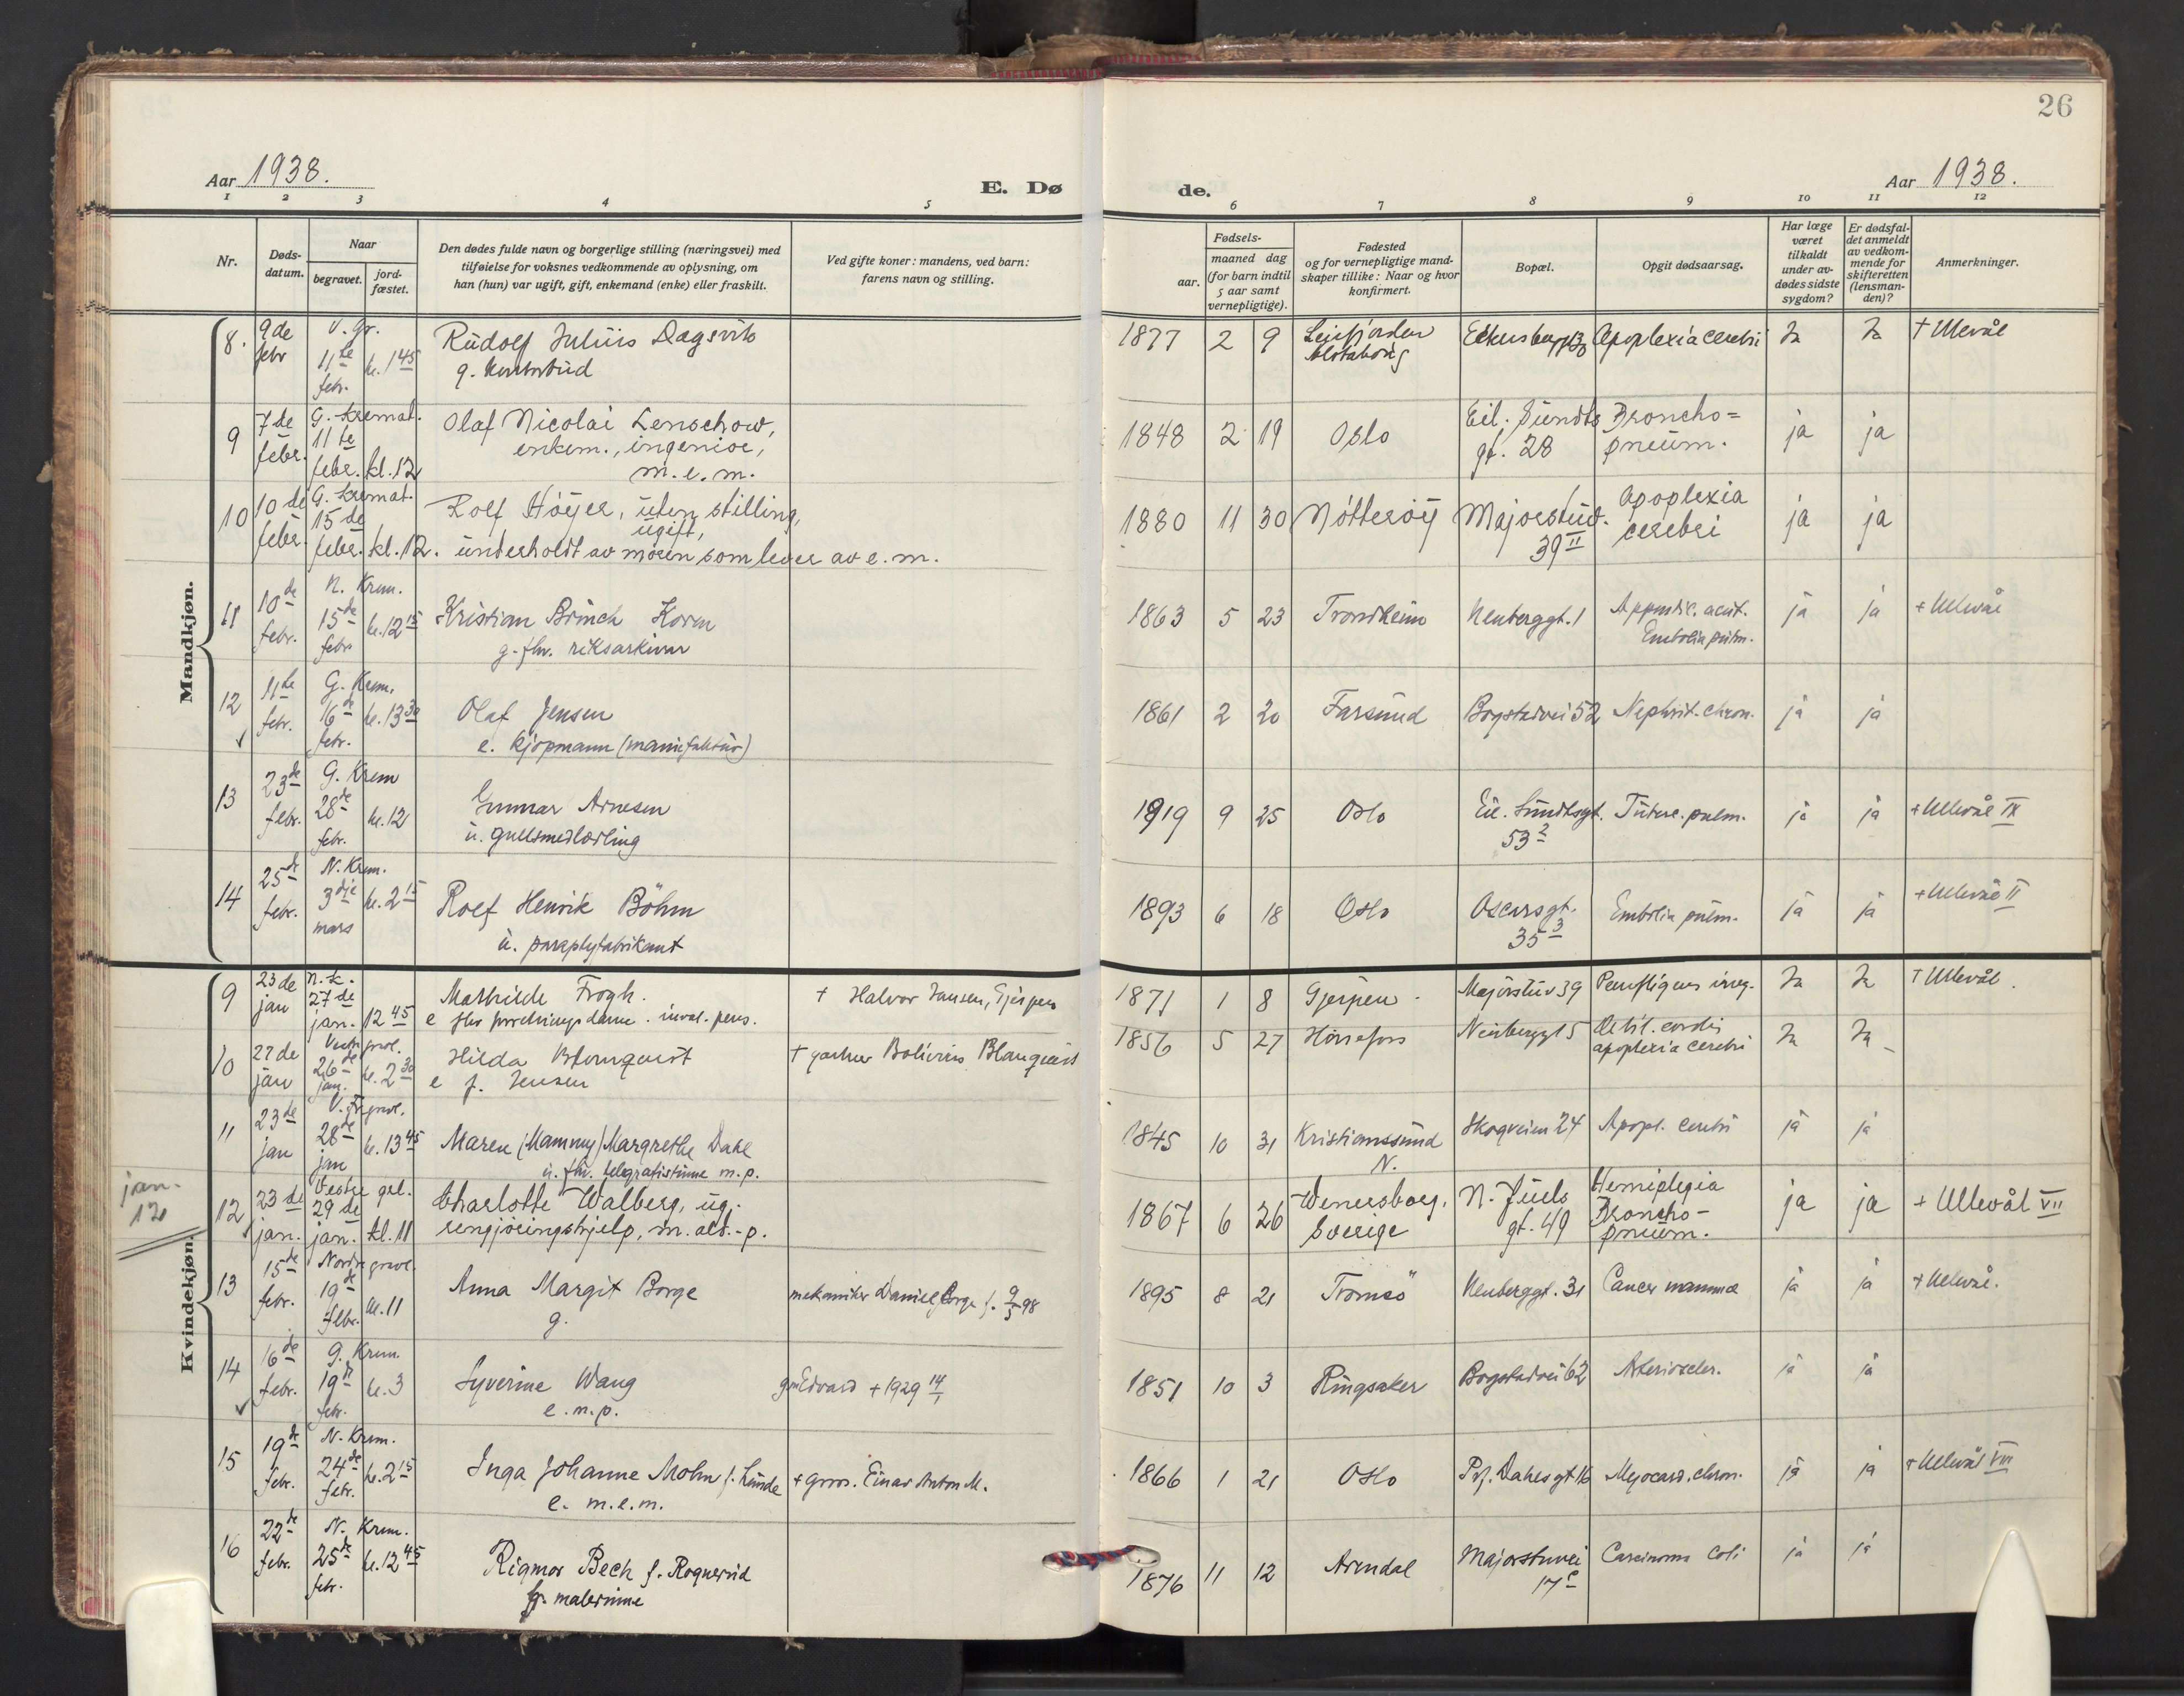 26
Aar 1938.
E. Dø
de.
Aar 1938.
1 2 3 4 5
6 7 8 9 10 11 12
Nr.
Døds-
datum.
Naar
begravet.
jord-
fæstet.
Den dødes fulde navn og borgerlige stilling (næringsvei) med
tilføielse for voksnes vedkommende av oplysning, om
han (hun) var ugift, gift, enkemand (enke) eller fraskilt.
Ved gifte koner: mandens, ved barn:
farens navn og stilling.
Fødsels-
aar.
maaned dag
(for barn indtil
5 aar samt
vernepligtige).
Fødested
og for vernepligtige mand-
skaper tillike: Naar og hvor
konfirmert.
Bopæl.
Opgit dødsaarsag.
Har læge
været
tilkaldt
under av-
dødes sidste
sygdom?
Er dødsfal-
det anmeldt
av vedkom-
mende for
skifteretten
(lensman-
den)?
Anmerkninger.
Mandkjøn.
8. 9de febr V. Gr. 11te febr. kl. 1 45
Rudolf Julius Dagsvik
g. kontorbud
1877 2 9 Leirfjorden Alstahoug Apoplexia cerebri Ja Ja † Ullevål
9 7de febr. G. Kremat. 11te febr. kl. 12
Olaf Nicolai Lenschow,
enkem., ingeniør,
m. e. m.
1848 2 19 Oslo Eil. Sundts gt. 28 Broncho= pneum. ja ja
10 10de febr. G. Kremat. 15de febr. kl. 12.
Rolf Höyer, uten stilling,
ugift,
underholdt av moren som lever av e. m.
1880 11 30 Nötteröy Majorstuv. 39 II Apoplexia cerebri ja ja
11 10de febr. N. Krem. 15de febr kl. 12 15
Kristian Brinch Koren
g. fhv. riksarkivar
1863 5 23 Trondheim Neuberggt. 1 Appendic. acut. Embolia pulm. ja ja + Ullevål
12 11te febr. G. Krem. 16de febr. kl. 13 30
Olaf Jensen
e. kjøpmann (manufaktur)
1861 2 20 Farsund Bogstadvei 52 Nephrit. chron. ja ja
13 23de febr. G. Krem 28de febr. kl. 12
Gunnar Arnesen
u. gullsmedlærling
1919 9 25 Oslo Eil. Sundtsgt. 53 2 Tuberc. pulm. ja ja + Ullevål IX
14 25de febr. N. Krem. 3dje mars kl. 2 15
Rolf Henrik Böhm
u. paraplyfabrikant
1893 6 18 Oslo Oscarsgt. 35 3 Embolia pulm. ja ja + Ullevål II
Kvindekjøn.
9 23de jan N. K. 27de jan. 12 45
Mathilde Frogh.
e fhv inval. pens.
† Halvor Jansen, Gjerpen
1871 1 8 Gjerpen Majorstuv 39 Ja Ja † Ullevål.
10 22de jan Vestre grvl. 26de jan. kl. 2 30
Hilda Blomquist
e f. Jensen
† gartner
1856 5 27 Neuberggt 5 Debil. cordis apoplexia cerebri Ja Ja
11 23de jan V. grvl. 28de jan kl. 13 45
Maren (Mammy) Margrethe Dahl
u. fhv. telegrafistinne m. p.
1845 10 31 Kristianssund N. Skogveien 24 Apopl. cerebri ja ja
jan.
12
12 23de jan. Vestre gvl. 29de jan. kl. 11
Charlotte Walberg, ug.
rengjöringshjelp, m. ald.-p.
1867 6 26 Wenersborg, Sverige N. Juels gt. 49 Hemiplegia Broncho- pneum. ja ja + Ullevål VII
13 15de febr. Nordre gravl. 19de febr. kl. 11
Anna Margit Borge
g.
mekaniker Daniel Borge f. 9/5 98
1895 8 21 Tromsö Neuberggt. 31 Cancer mammæ ja ja + Ullevål.
14 16de febr. G. Krem. 19de febr. kl. 3
Syverine Wang
e. m. p.
Edvard + 1929 14/1
1851 10 3 Ringsaker Bogstadvei 62 Arterioscler. ja ja
15 19de febr. N. Krem. 24de febr. kl. 2 15
Inga Johanne Mohn f. Lunde
e. m. e. m.
+ gross. Einar Anton M.
1866 1 21 Oslo Prf. Dahlsgt 16 Myocard. chron. ja ja + Ullevål VIII
16 22de febr. N. Krem. 25de febr. kl. 12 45
Rigmor Bech f. Rognerud
malerinne
1876 11 12 Arendal Majorstuvei 17 c Carcinoma coli ja ja